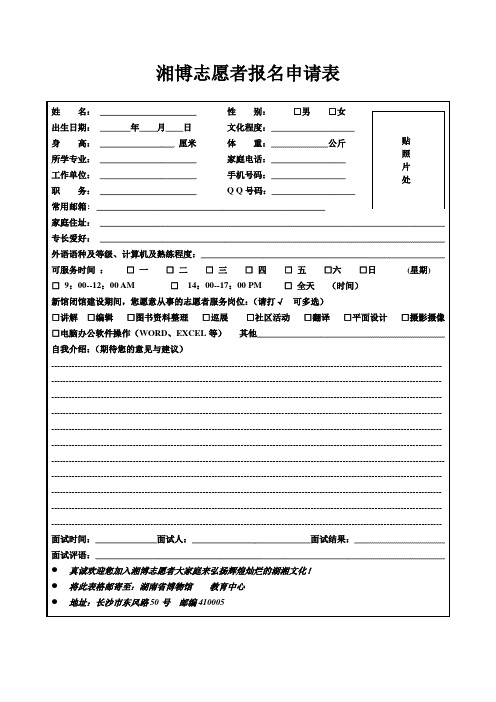 湘博志愿者报名申请表
姓 名： 性 别： □男 □女
出生日期： 年 月 日 文化程度：
身 高： 厘米 体 重： 公斤
所学专业： 家庭电话：
工作单位： 手机号码：
职 务： Q Q 号码：
贴
照
片
处
常用邮箱：
家庭住址：
专长爱好：
外语语种及等级、计算机及熟练程度：
可服务时间 ： □ 一 □ 二 □ 三 □ 四 □ 五 □六 □日 (星期)
□ 9；00--12；00 AM □ 14；00--17；00 PM □ 全天 （时间）
新馆闭馆建设期间，您愿意从事的志愿者服务岗位：（请打√ 可多选）
□讲解 □编辑 □图书资料整理 □巡展 □社区活动 □翻译 □平面设计 □摄影摄像
□电脑办公软件操作（WORD、EXCEL 等） 其他
自我介绍：（期待您的意见与建议）
面试时间： 面试人： 面试结果：
面试评语：
● 真诚欢迎您加入湘博志愿者大家庭来弘扬辉煌灿烂的湖湘文化！
● 将此表格邮寄至：湖南省博物馆 教育中心
● 地址：长沙市东风路 50 号 邮编 410005